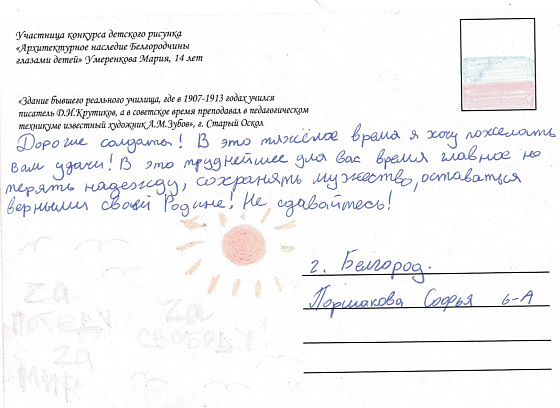 Участница конкурса детского рисунка
«Архитектурное наследие Белгородчины
глазами детей» Умеренкова Мария, 14 лет
«Здание бывшего реального училища, где в 1907-1913 годах учился
писатель Д.И.Крутиков, а в советское время преподавал в педагогическом
техникуме известный художник А.М.Зубов», г. Старый Оскол
Дорогие солдаты! В это тяжёлое время я хочу пожелать
вам удачи! В это труднейшее для вас время главное не
терять надежду, сохранять мужество, оставаться
верными своей Родине! Не сдавайтесь!
г. Белгород.
Поршакова Софья 6-А
Za
ПОБЕДУ
Za
СВОБОДУ
Za
Мир